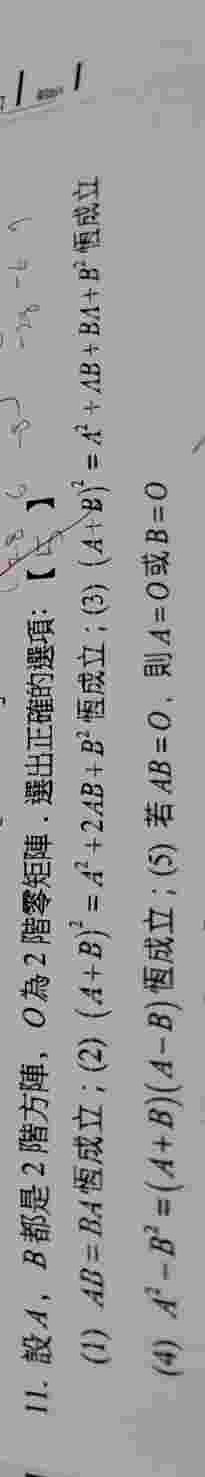 11. 設A，B都是2階方陣，O為2階零矩陣．選出正確的選項：【 】
(1) AB=BA恆成立；(2) (A+B)²=A²+2AB+B²恆成立；(3) (A+B)²=A²+AB+BA+B²恆成立
(4) A²-B²=(A+B)(A-B)恆成立；(5) 若AB=O，則A=O或B=O